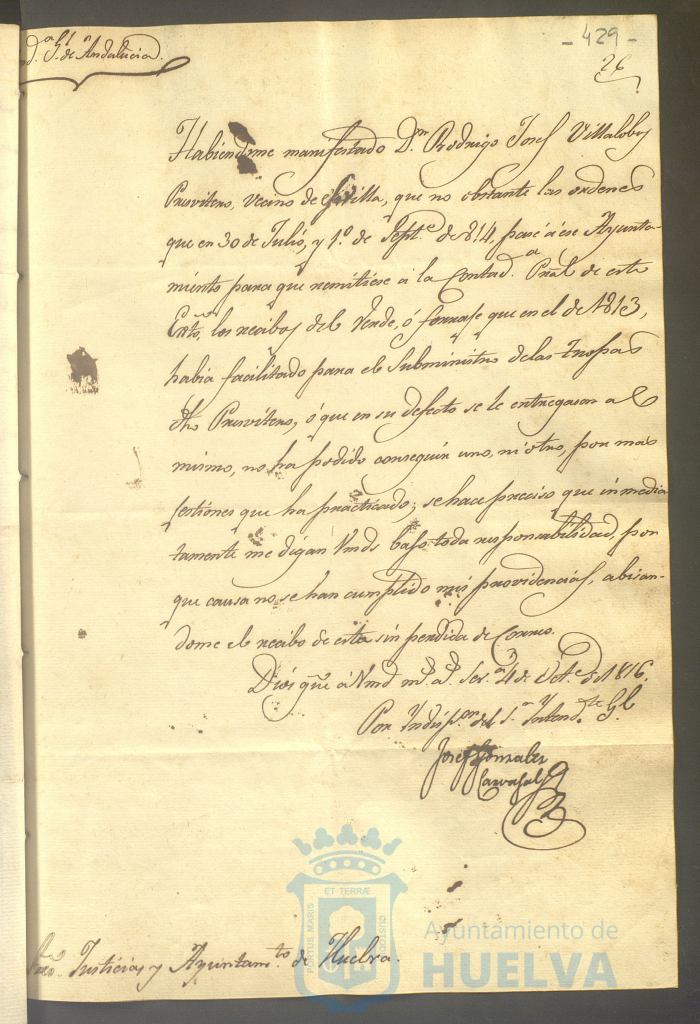 - 429 -
26
d.ª G.l de Andalucia.
Habiendome manifestado D.n Rodrigo Josef Villalobos
Presvitero, vecino de Sevilla, que no obstante las ordenes
que en 30 de Julio, y 1.º de Sept.e de 814, pasé á ese Ayunta-
miento para que remitiese á la Contad.a Pral de este
Exto, los recibos del Verde, ó forrage que en el de 1813,
habia facilitado para el Subministro de las tropas
dho Presvitero, ó que en su defecto se le entregasen al
mismo, no ha podido conseguir uno, ni otro, por mas
gestiones que ha practicado; se hace preciso que inmedia-
tamente me digan Vmds bajo toda responsabilidad, por
que causa no se han cumplido mis providencias, abisan-
dome el recibo de esta sin perdida de Correo.
Dios gue á Vmd m.s a.s Sev.a 4 de 1816.
Por Indisp.on del S.r Intend.te Gl
Josef Gonzalez
Carvajal
Justicias y Ayuntam.to de Huelva.
PORTUS MARIS
ET TERRÆ
CUSTODIA
Ayuntamiento de
HUELVA